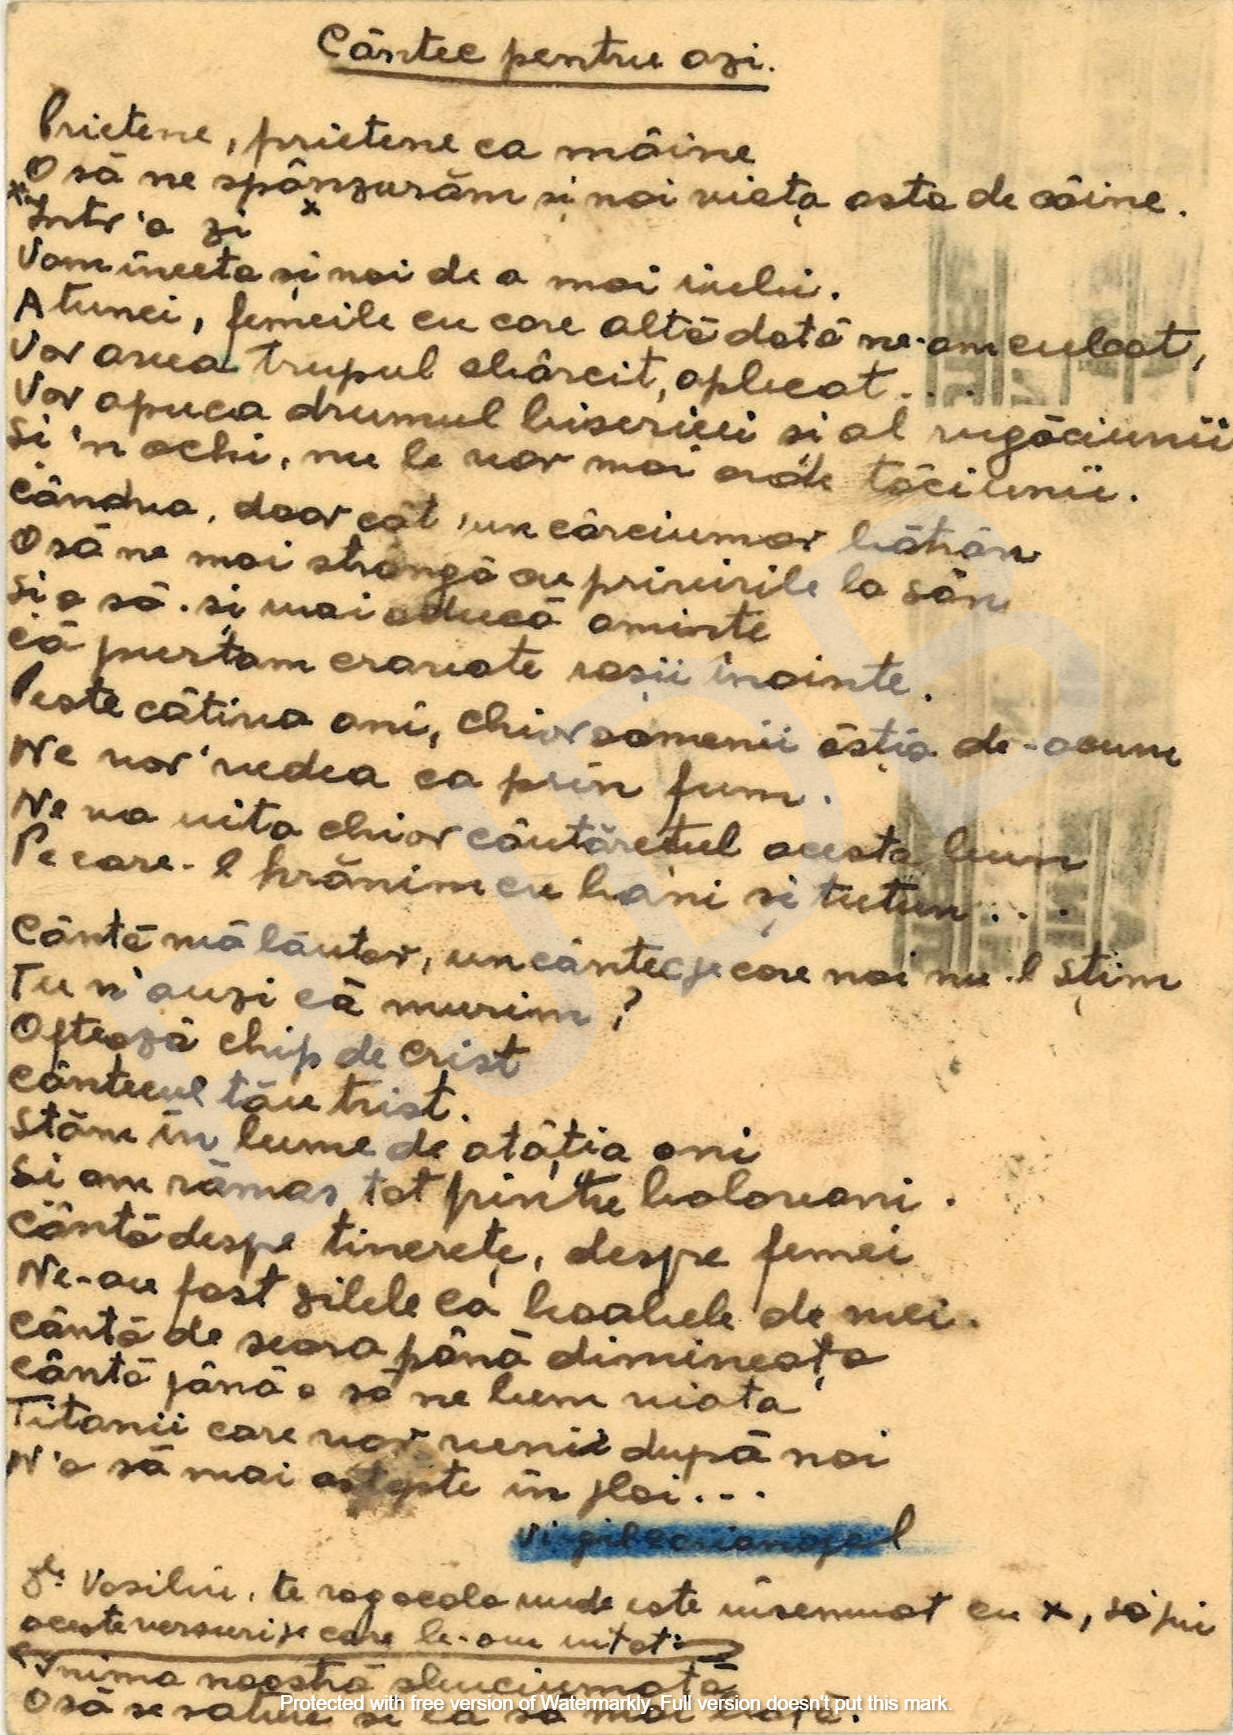 Cântec pentru azi.
Prietene, prietene ca mâine
O să ne spânzurăm și noi viața asta de câine.
x Într'o zi x
Vom înceta și noi de a mai iubi.
Atunci, femeile cu care altădată ne-am culcat,
Vor avea trupul chârcit, aplecat...
Vor apuca drumul bisericii și al rugăciunii
Si 'n ochi, nu le vor mai arde tăciunii.
Cândva, doar cât un cârciumar bătrân
O să ne mai strângă cu privirile la sân
Si o să-și mai aducă aminte
că purtam cravate roșii înainte.
Peste câtiva ani, chiar oamenii ăștia de-acum
Ne vor vedea ca prin fum.
Ne va uita chior cântărețul acesta bun
Pe care-l hrănim cu bani și tutun...
Cântă mă lăutar, un cântec pe care noi nu-l știm
Tu n'auzi că murim?
Oftează chip de Crist
Cântecul tău trist.
Stăm în lume de atâția ani
Si am rămas tot printre bolovani.
Cântă despre tinerețe, despre femei
Ne-au fost zilele ca boabele de mei.
Cântă de seara până dimineața
Cântă până o să ne bem viata
Titanii care vor venii după noi
N'o să mai aștepte în ploi...
Virgil Carianopol
Dle Vasiliu, te rog acolo unde este însemnat cu x, să pui
aceste versuri pe care le-am uitat:
Inima noastră sbuciumată
O să se sature și ea să mai bată.
Protected with free version of Watermarkly. Full version doesn't put this mark.